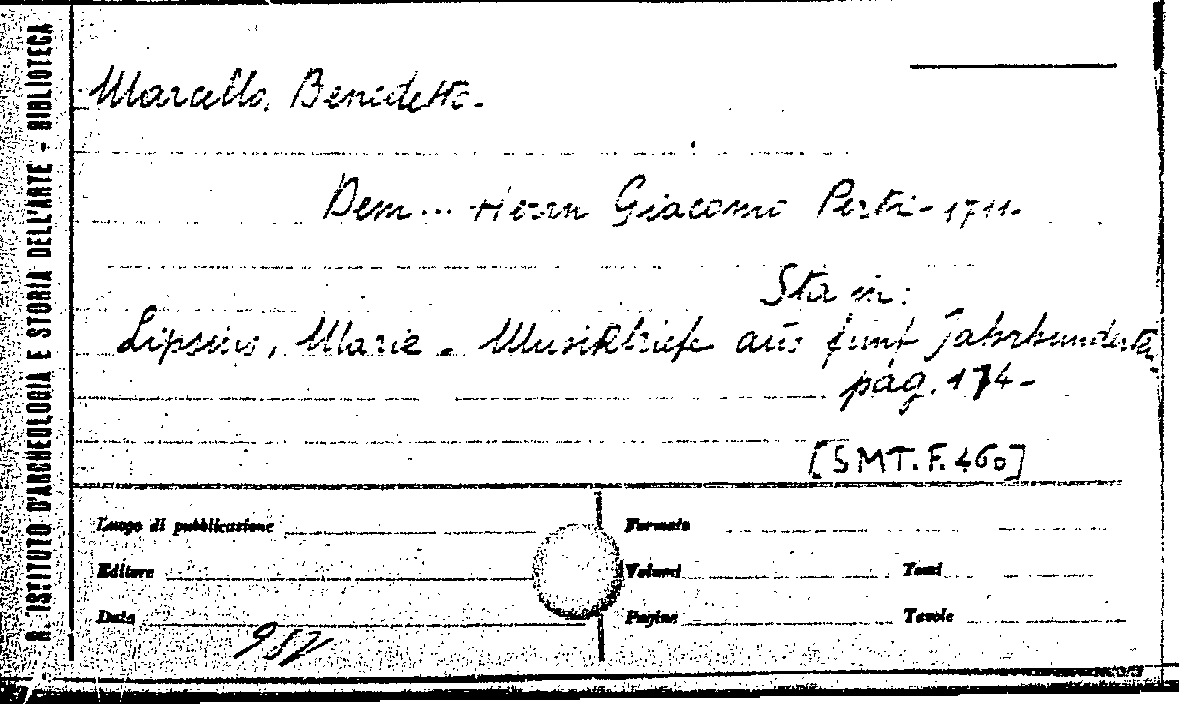 R. ISTITUTO D'ARCHEOLOGIA E STORIA DELL'ARTE - BIBLIOTECA
Marcello, Benedetto.
Dem... Herrn Giacomo Perti - 1711.
Sta in:
Lipsius, Marie - Musikbriefe aus fünf Jahrhunderten,
pag. 174 -
[SMT.F.460]
Luogo di pubblicazione
Formato
Editore
Volumi
Tomi
Data
Pagine
Tavole
957